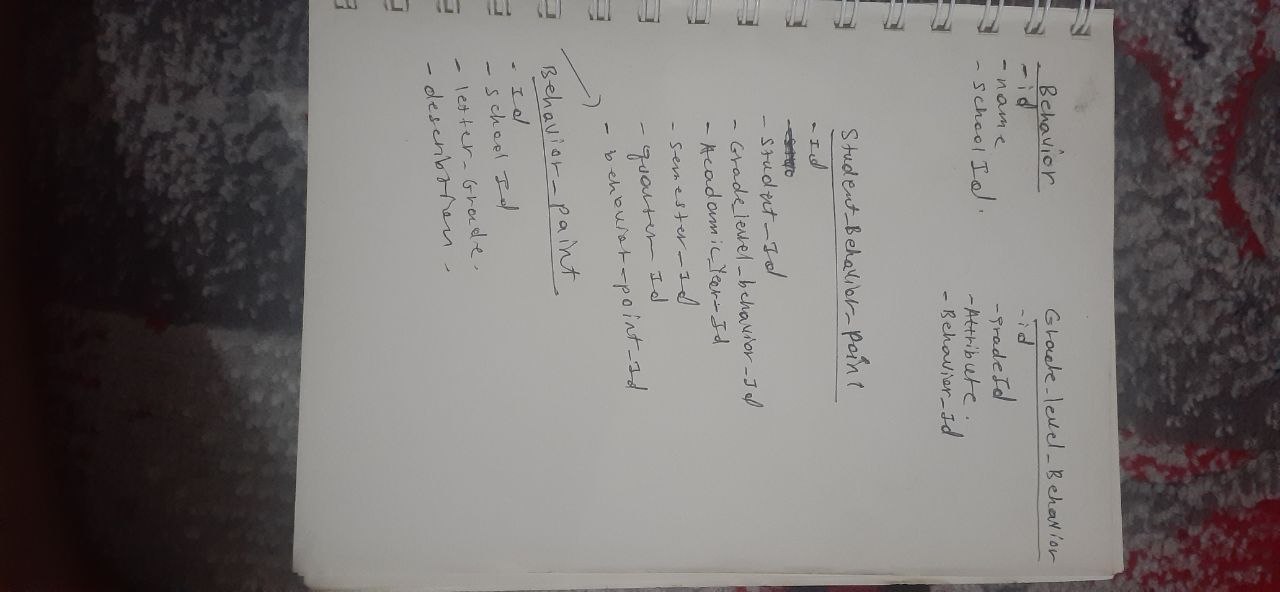 Behavior
- id
- name
- school Id.
Grade_level_Behavior
- id
- gradeId
- Attribute.
- Behavior_Id
Student_Behavior_point
- Id
- Student_Id
- Grade_level_behavior_Id
- Acadamic_Year_Id
- semester_Id
- quarter Id
- behavior_point_Id
Behavior_paint
- Id
- school Id
- letter_Grade.